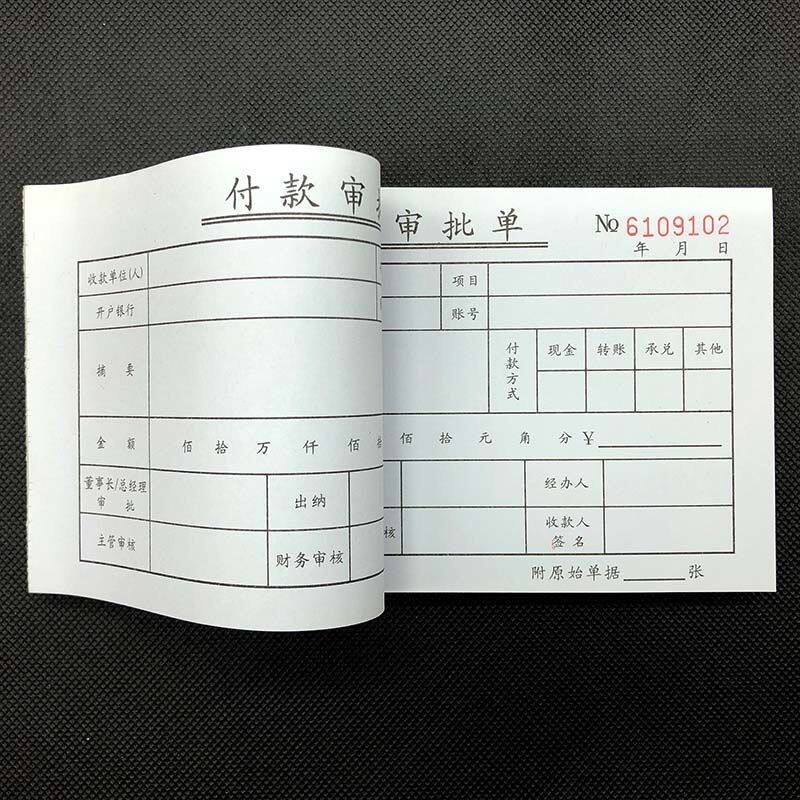 付款审
收款单位(人)
开户银行
摘 要
金 额 佰 拾 万 仟 佰
董事长/总经理
审 批
出纳
主管审核
财务审核
审批单
No 6109102
年 月 日
项目
账号
付款方式
现金 转账 承兑 其他
佰 拾 元 角 分 ¥
经办人
核
收款人
签名
附原始单据 张